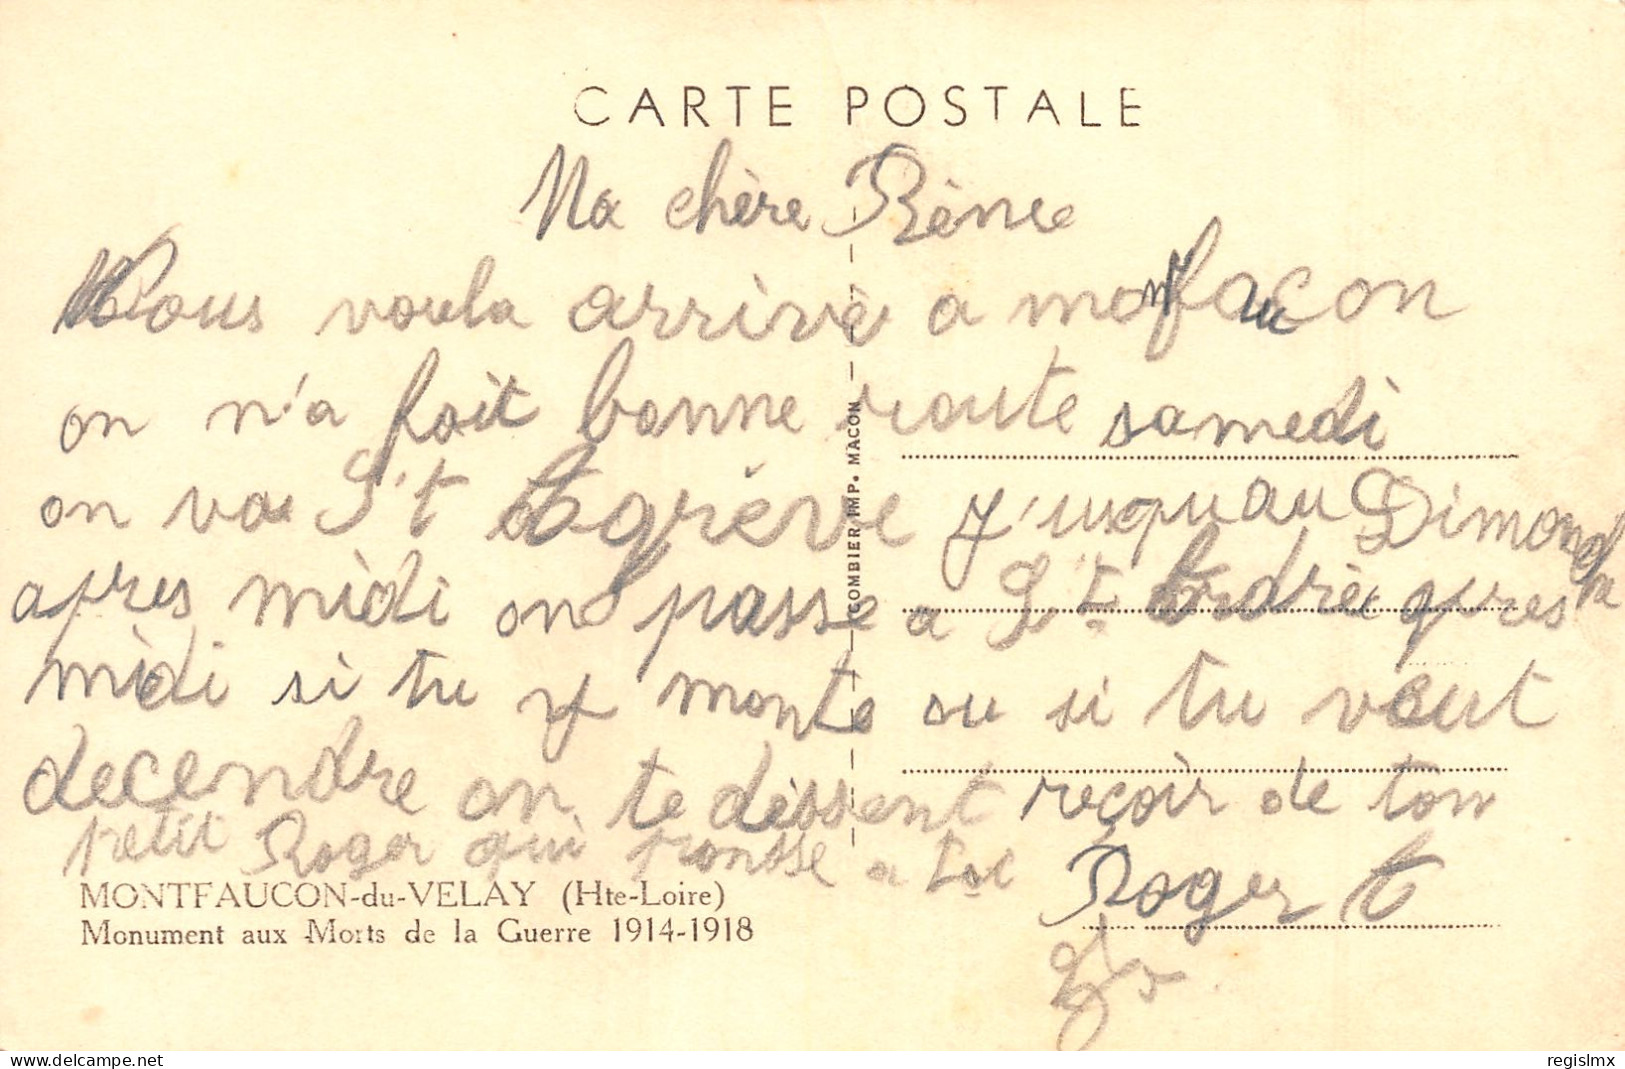 CARTE POSTALE
Ma chère Rènee
Nous voula arrivè a monfaucon
on n'a fait bonne route samedi
on va S't Agrève j'usqu'au Dimanche
apres midi on passe a St Andrè apres
midi si tu y monte ou si tu veut
decendre on te dèssent reçoir de ton
petit Roger qui pensse a toi
Roger
COMBIER IMP. MACON
MONTFAUCON-du-VELAY (Hte-Loire)
Monument aux Morts de la Guerre 1914-1918
regislmx